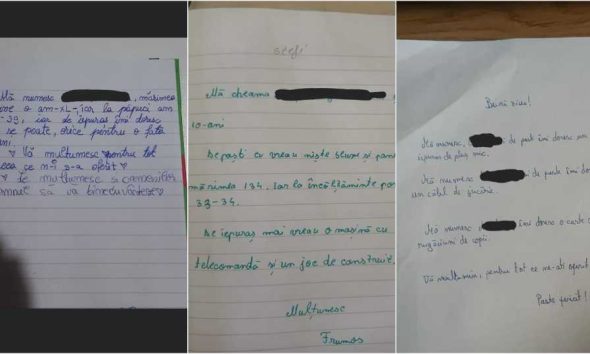 Mă numesc , mărimea
o am -XL- iar la papuci am
-39, iar de iepuraș îmi doresc
se poate, orice pentru o fată
ani.
Vă mulțumesc pentru tot
ceea ce
Le mulțumesc și oamenilor
să vă binecuvânteze
ștefi
Mă cheamă
10-ani
De paști eu vreau niște blugi și
mărimea 134. Iar la încălțăminte
33-34.
De iepuraș mai vreau o mașină cu
telecomandă și un joc de construit.
Mulțumesc
Frumos
Bună ziua!
Mă numesc de paști îmi doresc un
iepuraș de pluș mic.
Mă numesc de paște îmi
un căluț de jucărie.
Mă numesc îmi doresc o carte
rugăciuni de copii.
Vă mulțumim, pentru tot ce ne-ați oferit
Paște fericit!